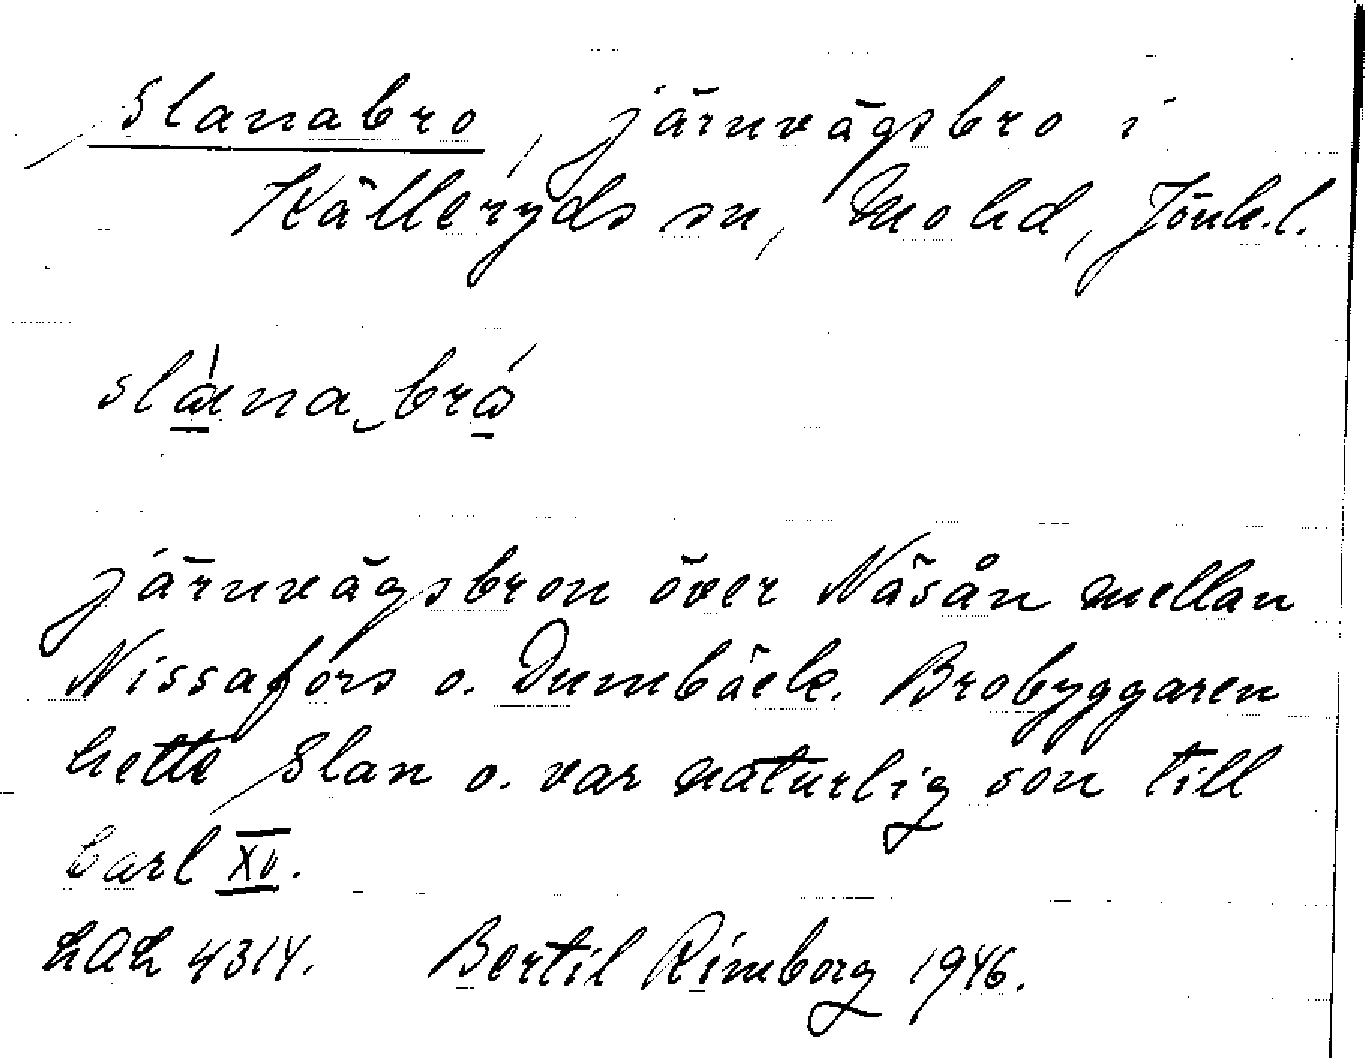 Slanabro, järnvägsbro i
Källeryds sn, Mo hd, Jönk.l.
järnvägsbron över Näsån mellan
Nissafors o. Dumbäck. Brobyggaren
hette Slan o. var naturlig son till
Carl XV.
4314. Bertil Rimborg 1946.